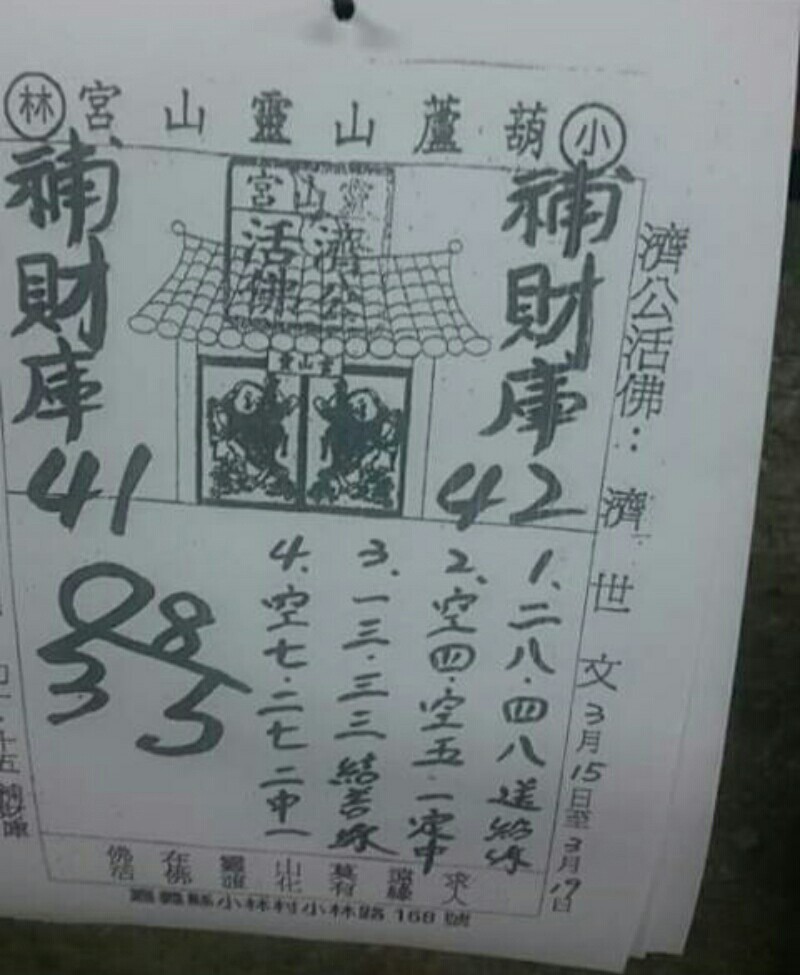 小葫蘆山靈山宮林
濟公活佛：濟世文3月15日至3月19日
補財庫42
補財庫41
靈山宮
濟公
活佛
靈山宮
1、二八·四八送給你
2、空四·空五·一定中
3、一三·三三結善緣
4、空七·二七二中一
08
35
求人
遠緣
莫有
山化
靈誰
在佛
佛活
嘉義縣小林村小林路168號